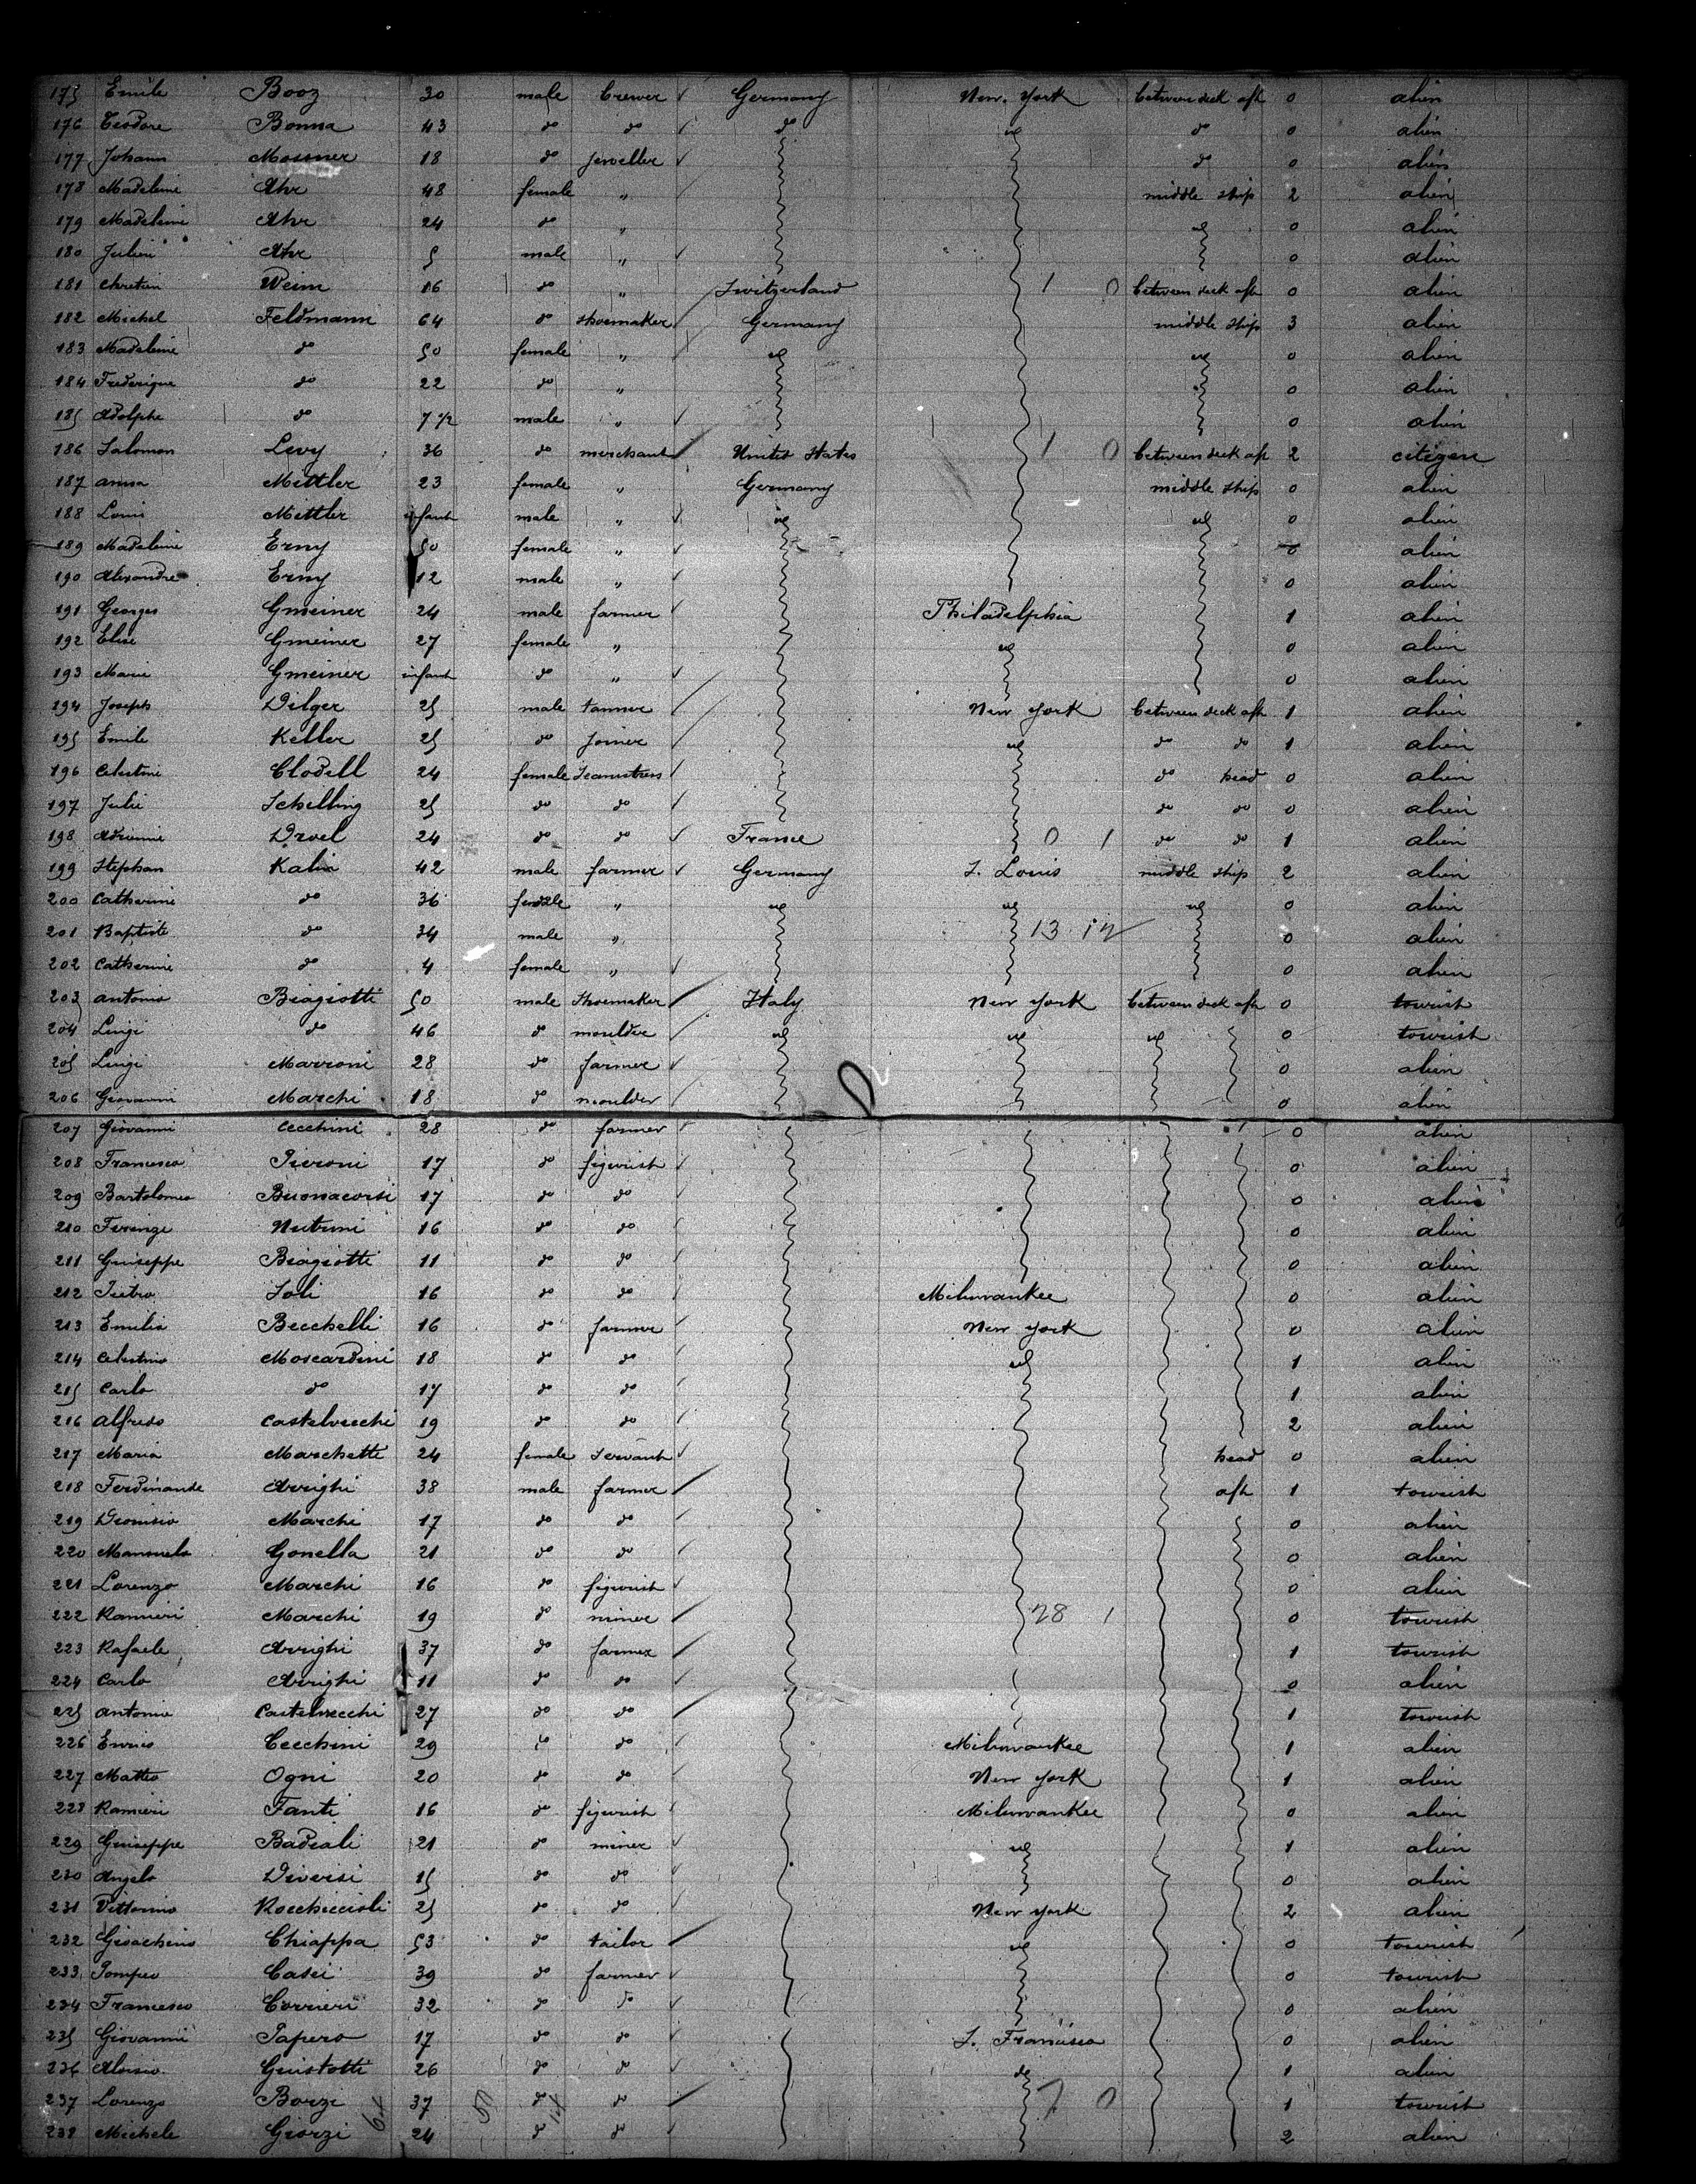 175 Emile Booz 30 male brewer Germany New. York between deck aft 0 alien
176 Teodore Bonna 43 do do do " do 0 alien
177 Johann Mossner 18 do jeweller do 0 alien
178 Madeleine Ahr 48 female " middle ship 2 alien
179 Madeleine Ahr 24 do " 0 alien
180 Julien Ahr 5 male " 0 alien
181 Chretien Weim 16 do " Switzerland 1 0 between deck aft 0 alien
182 Michel Feldmann 64 do shoemaker Germany middle ship 3 alien
183 Madeleine do 50 female " 0 alien
184 Frederique do 22 do " 0 alien
185 Adolphe do 7 1/2 male " 0 alien
186 Salomon Levy 36 do merchant United States 1 0 between deck aft 2 citizen
187 Anna Mettler 23 female " Germany middle ship 0 alien
188 Louis Mettler infant male " 0 alien
189 Madeleine Erny 50 female " 0 alien
190 Alexandre Erny 12 male " 0 alien
191 Georges Gmeiner 24 male farmer Philadelphia 1 alien
192 Elise Gmeiner 27 female " 0 alien
193 Marie Gmeiner infant do " 0 alien
194 Joseph Dilger 25 male tanner New York between deck aft 1 alien
195 Emile Keller 25 do joiner do do 1 alien
196 Celestine Clodell 24 female Seamstress do head 0 alien
197 Julie Schelling 25 do do do do 0 alien
198 Adrienne Droel 24 do do France 0 1 do do 1 alien
199 Stephan Kalix 42 male farmer Germany S. Louis middle ship 2 alien
200 Catherine do 36 female " 0 alien
201 Baptiste do 34 male " 13 12 0 alien
202 Catherine do 4 female " 0 alien
203 Antonio Biagiotti 50 male Shoemaker Italy New York between deck aft 0 tourist
204 Luigi do 46 do moulder 0 tourist
205 Luigi Marroni 28 do farmer 0 alien
206 Giovanni Marchi 18 do moulder 0 alien
207 Giovanni Cecchini 28 do farmer 0 alien
208 Francesco Pieroni 17 do figurist 0 alien
209 Bartolomeo Buonacorsi 17 do do 0 alien
210 Nutrini 16 do do 0 alien
211 Guiseppe Biagiotti 11 do do 0 alien
212 Pietro Soli 16 do do Milwaukee 0 alien
213 Emilio Becchelli 16 do farmer New York 0 alien
214 Celestino Moscardini 18 do do 1 alien
215 Carlo do 17 do do 1 alien
216 Alfredo Castelvecchi 19 do do 2 alien
217 Maria Marchetti 24 female Servant head 0 alien
218 Ferdinando Arrighi 38 male farmer aft 1 tourist
219 Dionisio Marchi 17 do do 0 alien
220 Manuelo Gonella 21 do do 0 alien
221 Lorenzo Marchi 16 do figurist 0 alien
222 Ranieri Marchi 19 do miner 28 1 0 tourist
223 Rafaele Arrighi 37 do farmer 1 tourist
224 Carlo Arrighi 11 do do 0 alien
225 Antonio Castelvecchi 27 do do 1 tourist
226 Enrico Cecchini 29 do do Milwaukee 1 alien
227 Matteo Ogni 20 do do New York 1 alien
228 Ranieri Fanti 16 do figurist Milwaukee 0 alien
229 Guiseppe Badiali 21 do miner 1 alien
230 Angelo Diversi 15 do do 0 alien
231 Vittorino Rocchiccioli 25 do do New York 2 alien
232 Gioachino Chiappa 53 do tailor 0 tourist
233 Pompeo Casci 39 do farmer 0 tourist
234 Francesco Corrieri 32 do do 0 alien
235 Giovanni Papero 17 do do S. Francisco 0 alien
236 Aloisio Guistotti 26 do do do 1 alien
237 Lorenzo Borzi 37 do do 7 0 1 tourist
238 Michele Giorzi 24 do do 2 alien